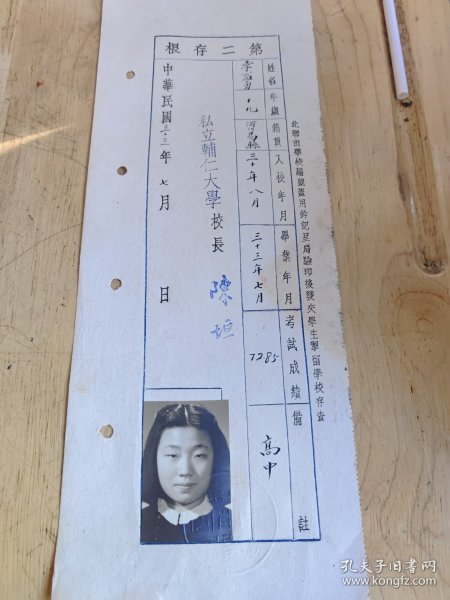 此聯由學校編號蓋用鈐記呈局驗印後發交學生畢留學校存查
第二存根
姓名
李
年歲
十九
籍貫
河
縣
入校年月
三十年八月
畢業年月
三十三年七月
考試成績
7285
備註
高中
私立輔仁大學校長 陳垣
中華民國三十三年七月 日
孔夫子旧书网
www.kongfz.com